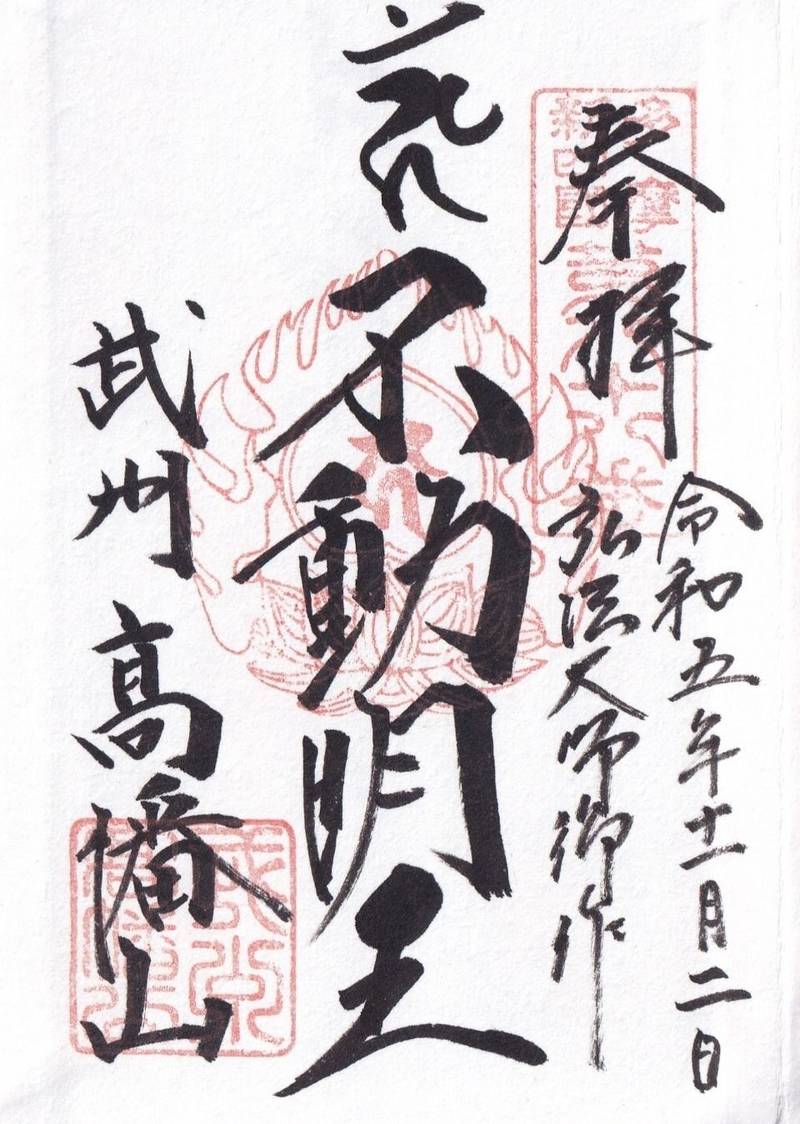 奉拝
令和五年十一月二日
弘法大師御作
不動明王
武州 高幡山